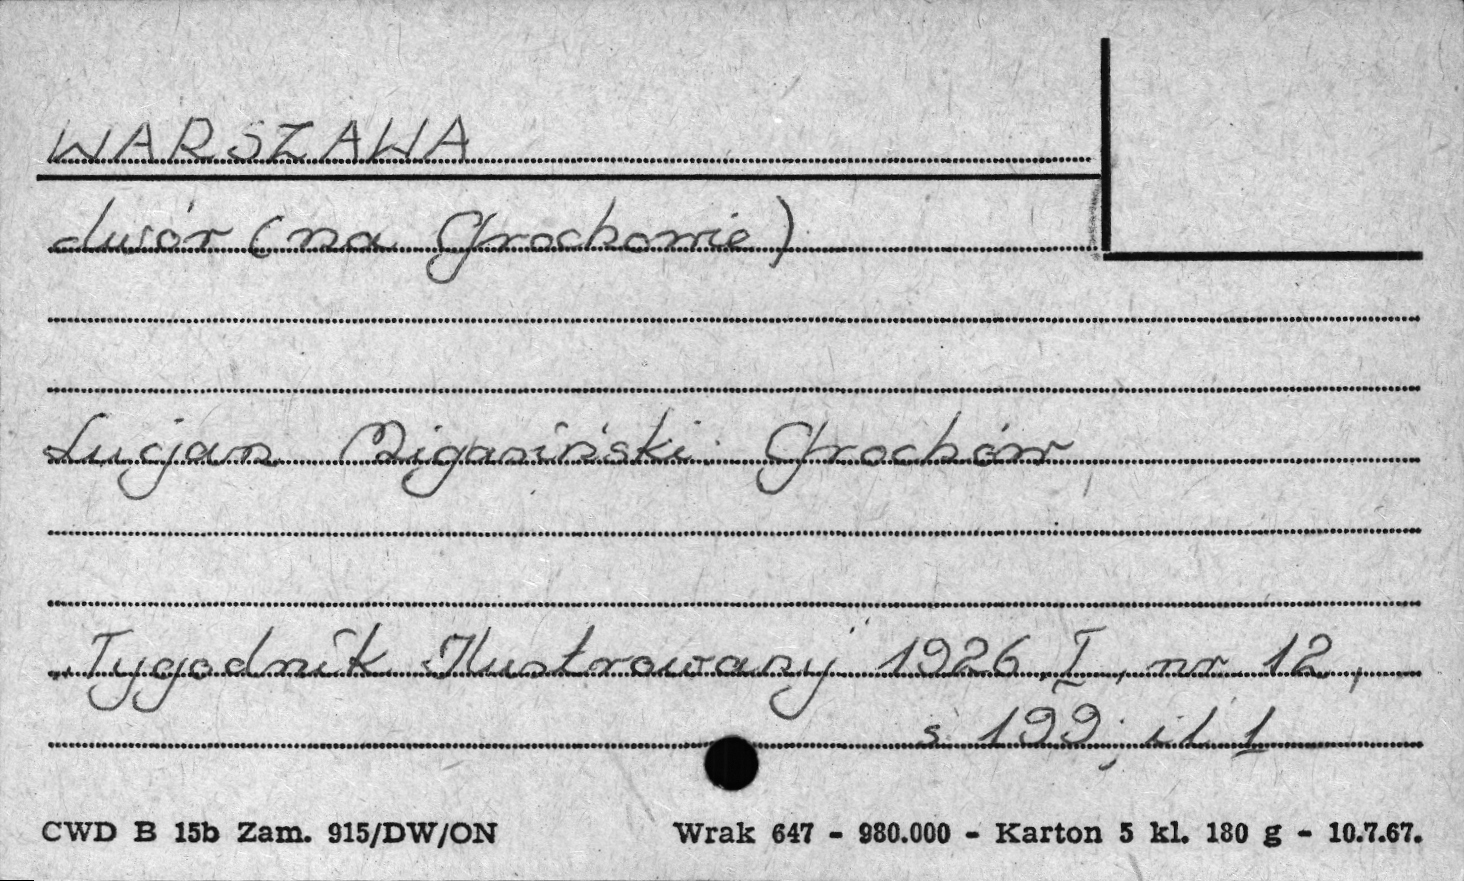 WARSZAWA
dwór (na Grochowie)
Lucjan Migasiński: Grochów
„Tygodnik Ilustrowany" 1926, I, nr 12,
s. 199; il. 1
CWD B 15b Zam. 915/DW/ON Wrak 647 - 980.000 - Karton 5 kl. 180 g - 10.7.67.